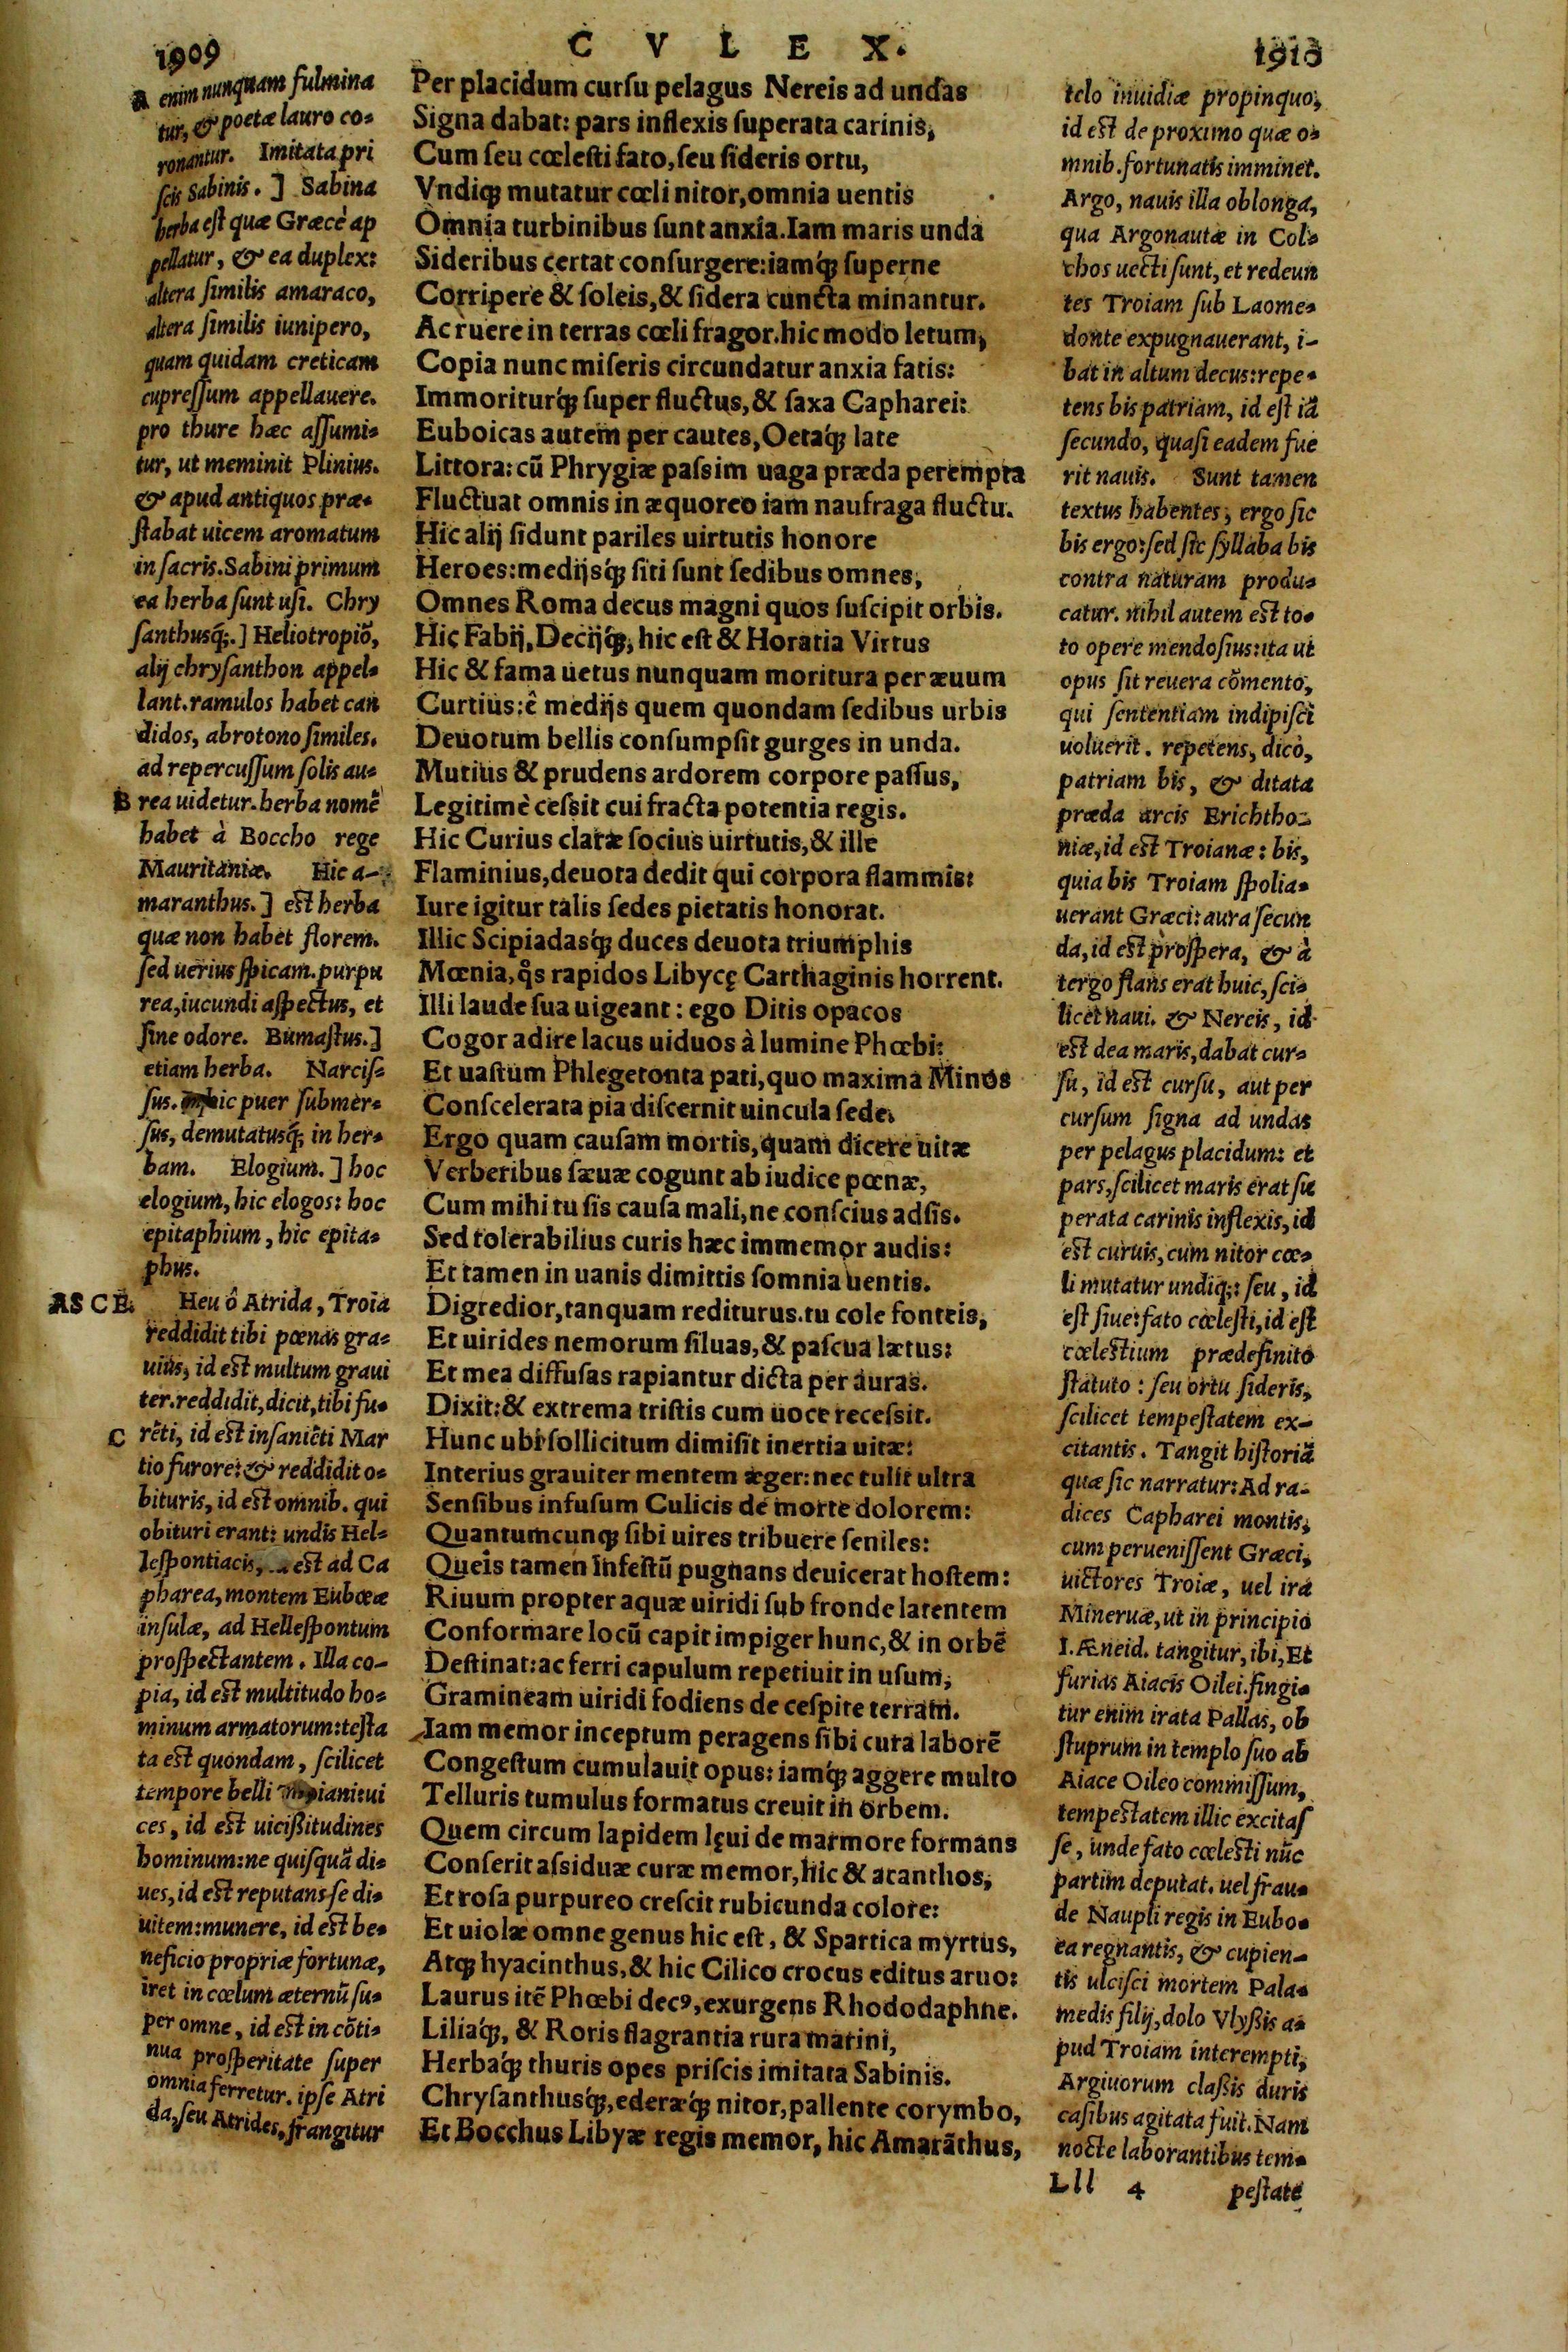 1909
C V L E X.
1910
A enim nunquam fulmina
tur, & poetæ lauro co⸗
ronantur. Imitata pri
ſcis Sabinis. ] Sabina
herba eſt quæ Græcè ap
pellatur, & ea duplex:
altera ſimilis amaraco,
altera ſimilis iunipero,
quam quidam creticam
cupreſſum appellauere.
pro thure hæc aſſumi⸗
tur, ut meminit Plinius.
& apud antiquos præ⸗
ſtabat uicem aromatum
in ſacris. Sabini primum
ea herba ſunt uſi. Chry
ſanthusq́;. ] Heliotropiõ,
alij chryſanthon appel⸗
lant. ramulos habet can
didos, abrotono ſimiles.
ad repercuſſum ſolis au⸗
B rea uidetur. herba nomẽ
habet à Boccho rege
Mauritaniæ. Hic a-
maranthus. ] eſt herba
quæ non habet florem.
ſed uerius ſpicam. purpu
rea, iucundi aſpectus, et
ſine odore. Bumaſtus. ]
etiam herba. Narciſ⸗
ſus. hic puer ſubmer⸗
ſus, demutatusq́; in her⸗
bam. Elogium. ] hoc
elogium, hic elogos: hoc
epitaphium, hic epita⸗
phus.
ASCE. Heu ô Atrida, Troia
reddidit tibi pœnas gra⸗
uius, id eſt multum graui
ter. reddidit, dicit, tibi fu⸗
C rẽti, id eſt inſaniẽti Mar
tio furore: & reddidit o⸗
bituris, id eſt omnib. qui
obituri erant: undis Hel⸗
leſpontiacis, eſt ad Ca
pharea, montem Eubœæ
inſulæ, ad Helleſpontum
proſpectantem. Illa co-
pia, id eſt multitudo ho⸗
minum armatorum: teſta
ta eſt quondam, ſcilicet
tempore belli ui
ces, id eſt uicißitudines
hominum: ne quiſquã di⸗
ues, id eſt reputans ſe di⸗
uitem: munere, id eſt be⸗
neficio propriæ fortunæ,
iret in cœlum æternũ ſu⸗
per omne, id eſt in cõti⸗
nua proſperitate ſuper
omnia ferretur. ipſe Atri
da, ſeu Atrides, frangitur
Per placidum curſu pelagus Nereis ad undas
Signa dabat: pars inflexis ſuperata carinis,
Cum ſeu cœleſti fato, ſeu ſideris ortu,
Vndiq; mutatur cœli nitor, omnia uentis
Omnia turbinibus ſunt anxia. Iam maris unda
Sideribus certat conſurgere: iamq́; ſuperne
Corripere & ſoleis, & ſidera cuncta minantur.
Ac ruere in terras cœli fragor. hic modo letum,
Copia nunc miſeris circundatur anxia fatis:
Immoriturq́; ſuper fluctus, & ſaxa Capharei:
Euboicas autem per cautes, Oetaq́; late
Littora: cũ Phrygiæ paſsim uaga præda perempta
Fluctuat omnis in æquoreo iam naufraga fluctu.
Hic alij ſidunt pariles uirtutis honore
Heroes: medijsq́; ſiti ſunt ſedibus omnes,
Omnes Roma decus magni quos ſuſcipit orbis.
Hic Fabij, Decijq́;, hic eſt & Horatia Virtus
Hic & fama uetus nunquam moritura per æuum
Curtius: ẽ medijs quem quondam ſedibus urbis
Deuotum bellis conſumpſit gurges in unda.
Mutius & prudens ardorem corpore paſſus,
Legitimè ceſsit cui fracta potentia regis.
Hic Curius claræ ſocius uirtutis, & ille
Flaminius, deuota dedit qui corpora flammis:
Iure igitur talis ſedes pietatis honorat.
Illic Scipiadasq́; duces deuota triumphis
Mœnia, q̊s rapidos Libycę Carthaginis horrent.
Illi laude ſua uigeant: ego Ditis opacos
Cogor adire lacus uiduos à lumine Phœbi:
Et uaſtum Phlegetonta pati, quo maxima Minos
Conſcelerata pia diſcernit uincula ſede.
Ergo quam cauſam mortis, quam dicere uitæ
Verberibus ſæuæ cogunt ab iudice pœnæ,
Cum mihi tu ſis cauſa mali, ne conſcius adſis.
Sed tolerabilius curis hæc immemor audis:
Et tamen in uanis dimittis ſomnia uentis.
Digredior, tanquam rediturus. tu cole fonteis,
Et uirides nemorum ſiluas, & paſcua lætus:
Et mea diffuſas rapiantur dicta per auras.
Dixit: & extrema triſtis cum uoce receſsit.
Hunc ubi ſollicitum dimiſit inertia uitæ:
Interius grauiter mentem æger: nec tulit ultra
Senſibus infuſum Culicis de morte dolorem:
Quantumcunq; ſibi uires tribuere ſeniles:
Queis tamen infeſtũ pugnans deuicerat hoſtem:
Riuum propter aquæ uiridi ſub fronde latentem
Conformare locũ capit impiger hunc, & in orbẽ
Deſtinat: ac ferri capulum repetiuit in uſum,
Gramineam uiridi fodiens de ceſpite terram.
Iam memor inceptum peragens ſibi cura laborẽ
Congeſtum cumulauit opus: iamq́; aggere multo
Telluris tumulus formatus creuit in orbem.
Quem circum lapidem lęui de marmore formans
Conſerit aſsiduæ curæ memor, hic & acanthos,
Et roſa purpureo creſcit rubicunda colore:
Et uiolæ omne genus hic eſt, & Spartica myrtus,
Atq; hyacinthus, & hic Cilico crocus editus aruo:
Laurus itẽ Phœbi decꝰ, exurgens Rhododaphne.
Liliaq́;, & Roris flagrantia rura marini,
Herbaq́; thuris opes priſcis imitata Sabinis.
Chryſanthusq́;, ederæq́; nitor, pallente corymbo,
Et Bocchus Libyæ regis memor, hic Amarãthus,
telo inuidiæ propinquo,
id eſt de proximo quæ o⸗
mnib. fortunatis imminet.
Argo, nauis illa oblonga,
qua Argonautæ in Col⸗
chos uecti ſunt, et redeun
tes Troiam ſub Laome⸗
donte expugnauerant, i-
bat in altum decus: repe⸗
tens bis patriam, id eſt iã
ſecundo, quaſi eadem fue
rit nauis. Sunt tamen
textus habentes, ergo ſic
bis ergo: ſed ſic ſyllaba bis
contra naturam produ⸗
catur. nihil autem eſt to⸗
to opere mendoſius: ita ut
opus ſit reuera cõmento,
qui ſententiam indipiſci
uoluerit. repetens, dico,
patriam bis, & ditata
præda arcis Erichtho⸗
niæ, id eſt Troianæ: bis,
quia bis Troiam ſpolia⸗
uerant Græci: aura ſecun
da, id eſt proſpera, & à
tergo flans erat huic, ſci⸗
licet naui. & Nereis, id
eſt dea maris, dabat cur⸗
ſu, id eſt curſu, aut per
curſum ſigna ad undas
per pelagus placidum: et
pars, ſcilicet maris erat ſu
perata carinis inflexis, id
eſt curuis, cum nitor cœ⸗
li mutatur undiq;: ſeu, id
eſt ſiue: fato cœleſti, id eſt
cœleſtium prædefinito
ſtatuto: ſeu ortu ſideris,
ſcilicet tempeſtatem ex-
citantis. Tangit hiſtoriã
quæ ſic narratur: Ad ra-
dices Capharei montis,
cum perueniſſent Græci,
uictores Troiæ, uel ira
Mineruæ, ut in principio
I. Æneid. tangitur, ibi, Et
furias Aiacis Oilei. fingi⸗
tur enim irata Pallas, ob
ſtuprum in templo ſuo ab
Aiace Oileo commiſſum,
tempeſtatem illic excitaſ
ſe, unde fato cœleſti nũc
partim deputat. uel frau⸗
de Naupli regis in Eubo⸗
ea regnantis, & cupien-
tis ulciſci mortem Pala⸗
medis filij, dolo Vlyßis a⸗
pud Troiam interempti,
Argiuorum claßis duris
caſibus agitata fuit. Nam
nocte laborantibus tem⸗
Lll 4 peſtate